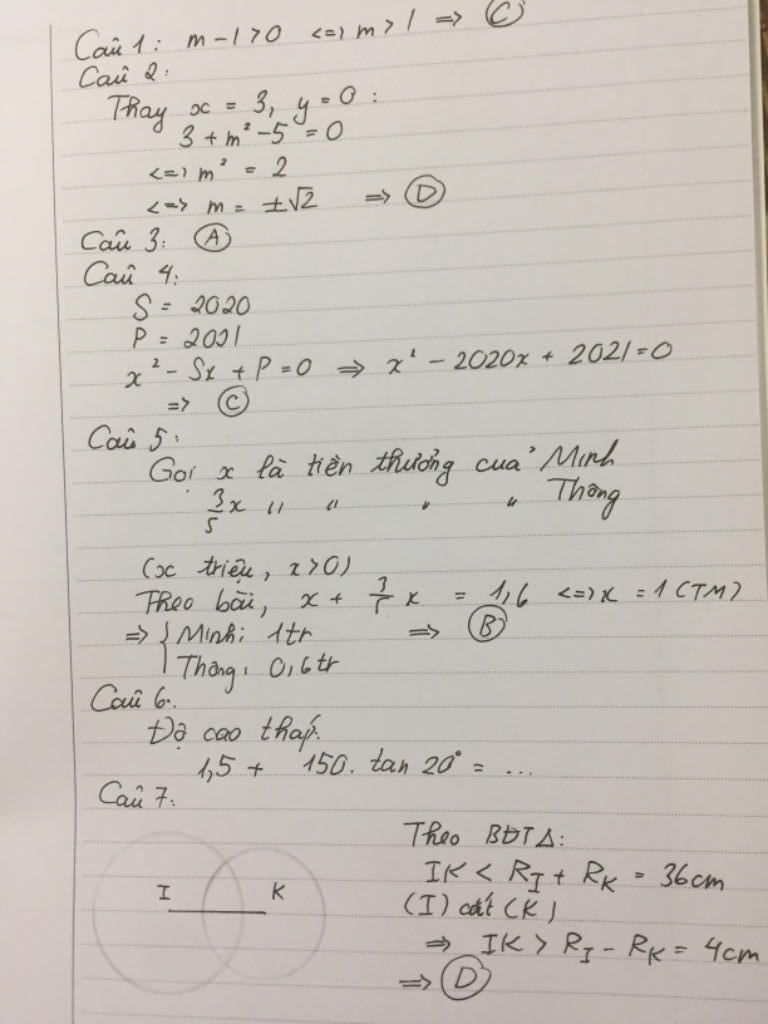 Câu 1: m - 1 > 0 <=> m > 1 => Ⓒ
Câu 2:
Thay x = 3, y = 0 :
3 + m² - 5 = 0
<=> m² = 2
<=> m = ±√2 => Ⓓ
Câu 3: Ⓐ
Câu 4:
S = 2020
P = 2021
x² - Sx + P = 0 => x² - 2020x + 2021 = 0
=> Ⓒ
Câu 5:
Gọi x là tiền thưởng của Minh
3/5 x " " " " Thông
(x triệu, x > 0)
Theo bài, x + 3/5 x = 1,6 <=> x = 1 (TM)
=> { Minh: 1tr => Ⓑ
Thông: 0,6tr
Câu 6:
Độ cao tháp:
1,5 + 150. tan 20° = ...
Câu 7:
Theo BĐT Δ:
I K
IK < R_I + R_K = 36cm
(I) cắt (K)
=> IK > R_I - R_K = 4cm
=> Ⓓ